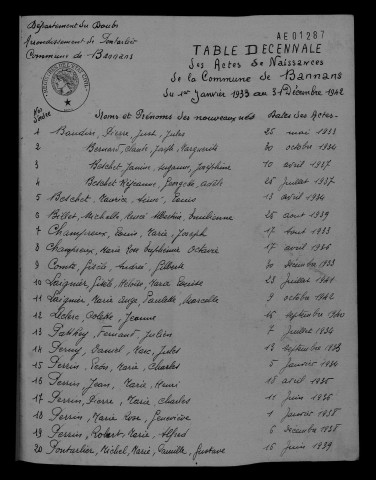 Département du Doubs
Arrondissement de Pontarlier
Commune de Bannans
AE01287
TABLE DECENNALE
Des Actes de Naissances
de la Commune de Bannans
du 1er Janvier 1933 au 31 Décembre 1942
Nos d'ordre
Noms et Prénoms des nouveaux-nés Dates des Actes
1 Pierre, Just, Jules 25 mai 1933
2 Bernard, Claude, Joseph, Marguerite 30 octobre 1934
3 Beschet, Janine, Suzanne, Joséphine 10 avril 1937
4 Beschet 25 juillet 1937
5 Beschet, Maurice, Henri, Louis 13 avril 1934
6 Billet, Michelle, 25 août 1939
7 Champreux, Louis, Marie, Joseph 17 août 1933
8 Champreux, Marie Rose Octavie 17 avril
9 Comte, Gisèle, Andrée, Gilberte 30 décembre 1933
10 Laignier, Gisèle, Marie Louise 23 juillet 1941
11 Laignier, Marie Ange, Paulette, Marcelle 9 octobre 1942
12 Leclerc, Colette, Jeanne 16 septembre 1940
13 Fernand, Julien 7 juillet 1934
14 Perny, Daniel, Marc, Jules 12 septembre
15 Perrin, Léon, Marie, Charles 5 janvier 1934
16 Perrin, Jean, Marie, Henri 18 avril 1935
17 Perrin, Pierre, Marie, Charles 11 juin 1936
18 Perrin, Marie Rose, Geneviève 1 janvier 1938
19 Perrin, Robert, Marie, Alfred 6 décembre 1938
20 Pontarlier, Michel, Marie, Camille, Gustave 15 juin 1939